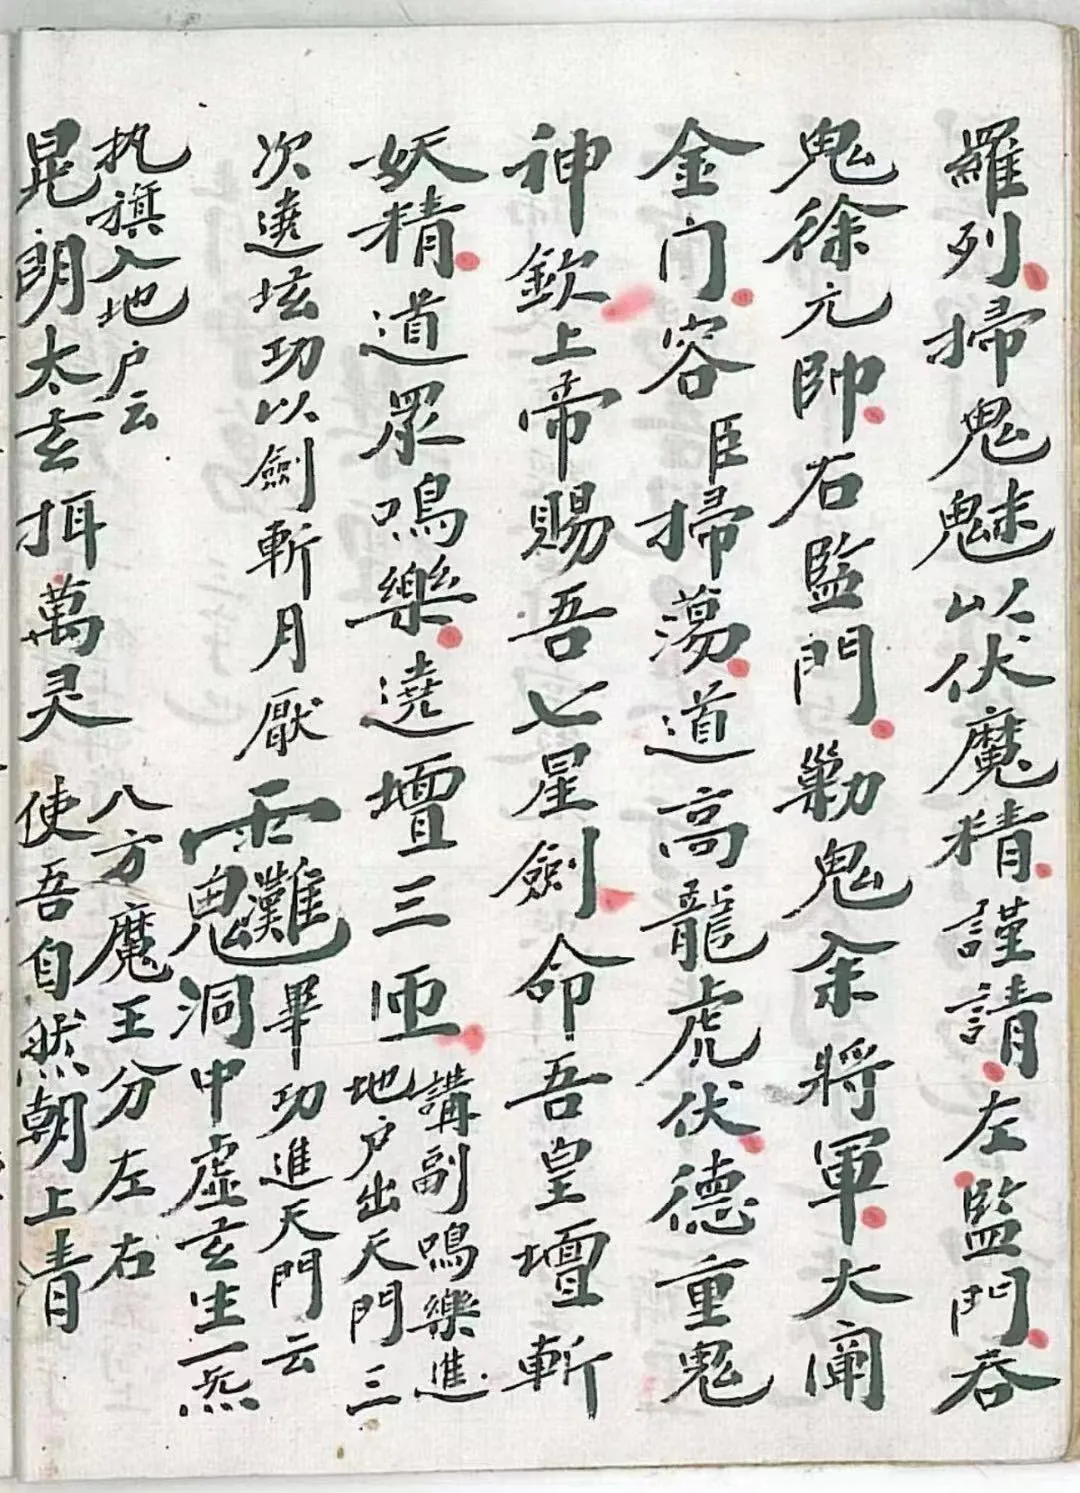 羅列掃鬼魅以伏魔精謹請左監門吞
鬼徐元帥右監門剿鬼余將軍大闡
金门容臣掃蕩道高龍虎伏德重鬼
神欽上帝賜吾七星劍命吾皇壇斬
妖精道眾鳴樂遶壇三匝
講副鳴樂進
地户出天門三
次遶坛功以劍斬月厭
畢功進天門云
洞中虛玄生一炁
执旗入地户云
晃朗太玄
萬灵
八方魔王分左右
使吾自然朝上青